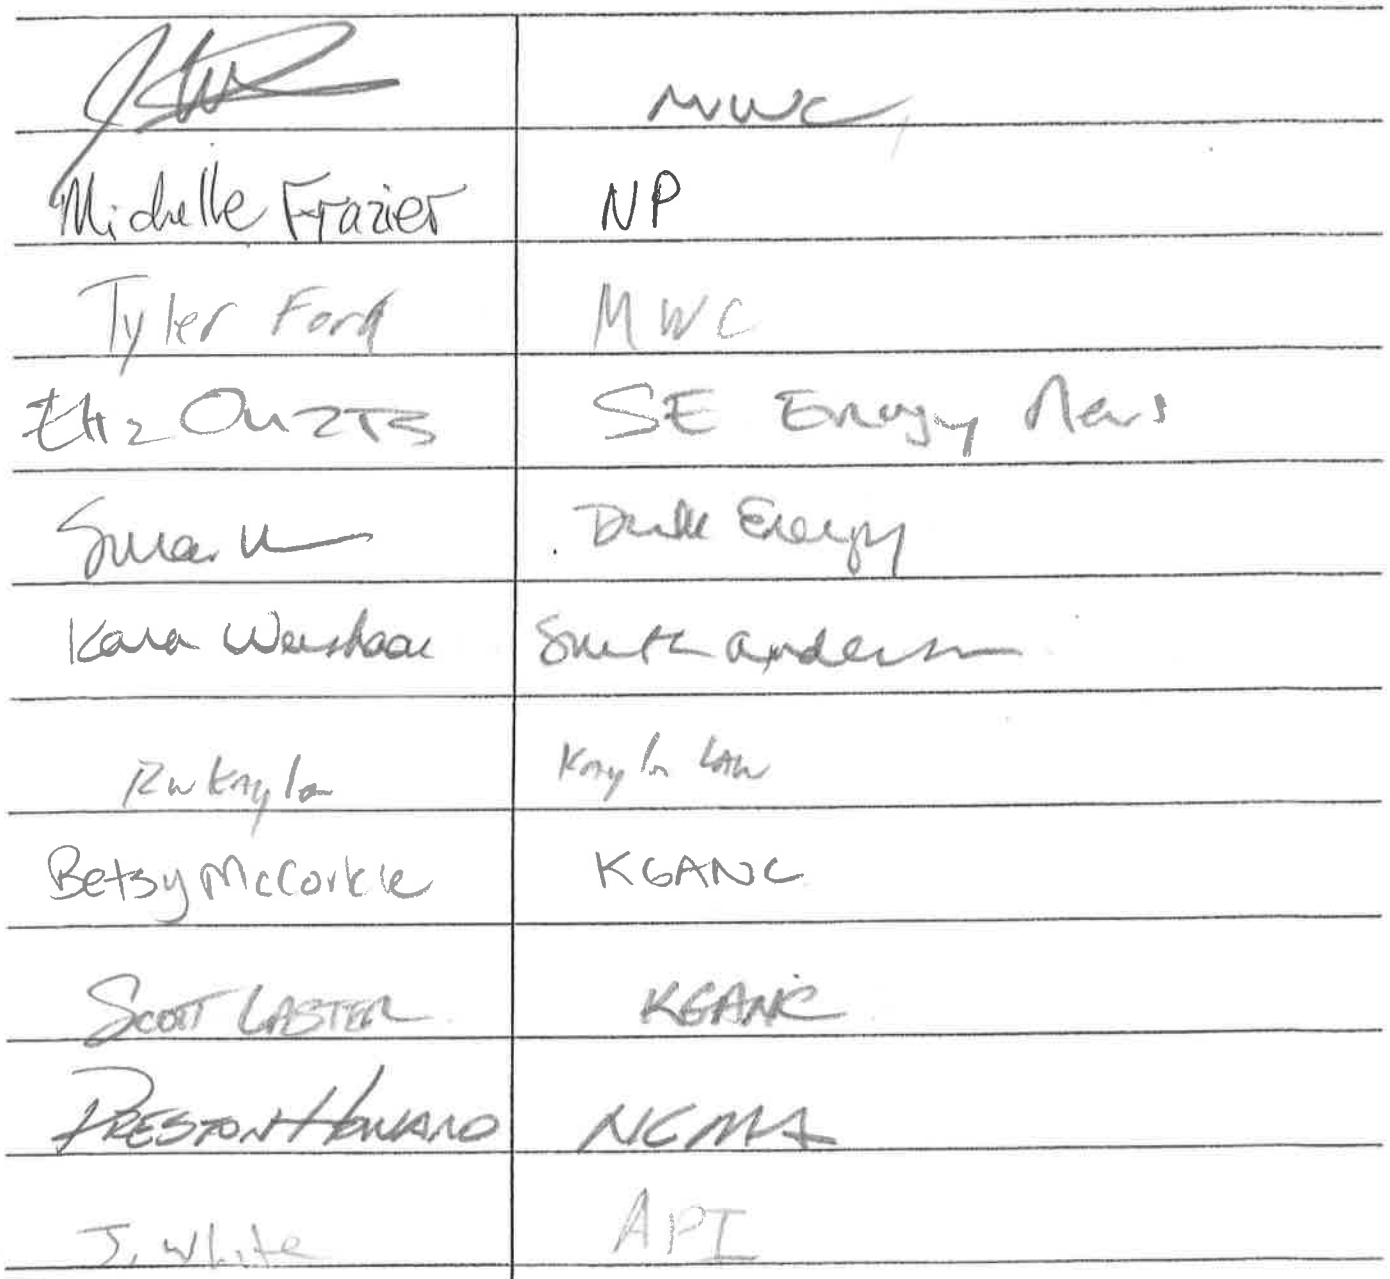 MWC
Michelle Frazier NP
Tyler Ford MWC
Eliz Ouzts SE Energy News
Susan Duke Energy
Kara Weishaar Smith Anderson
RW Kaylor Kaylor Law
Betsy McCorkle KGANC
Scott Laster KGANC
Preston Howard NCMA
J. White API